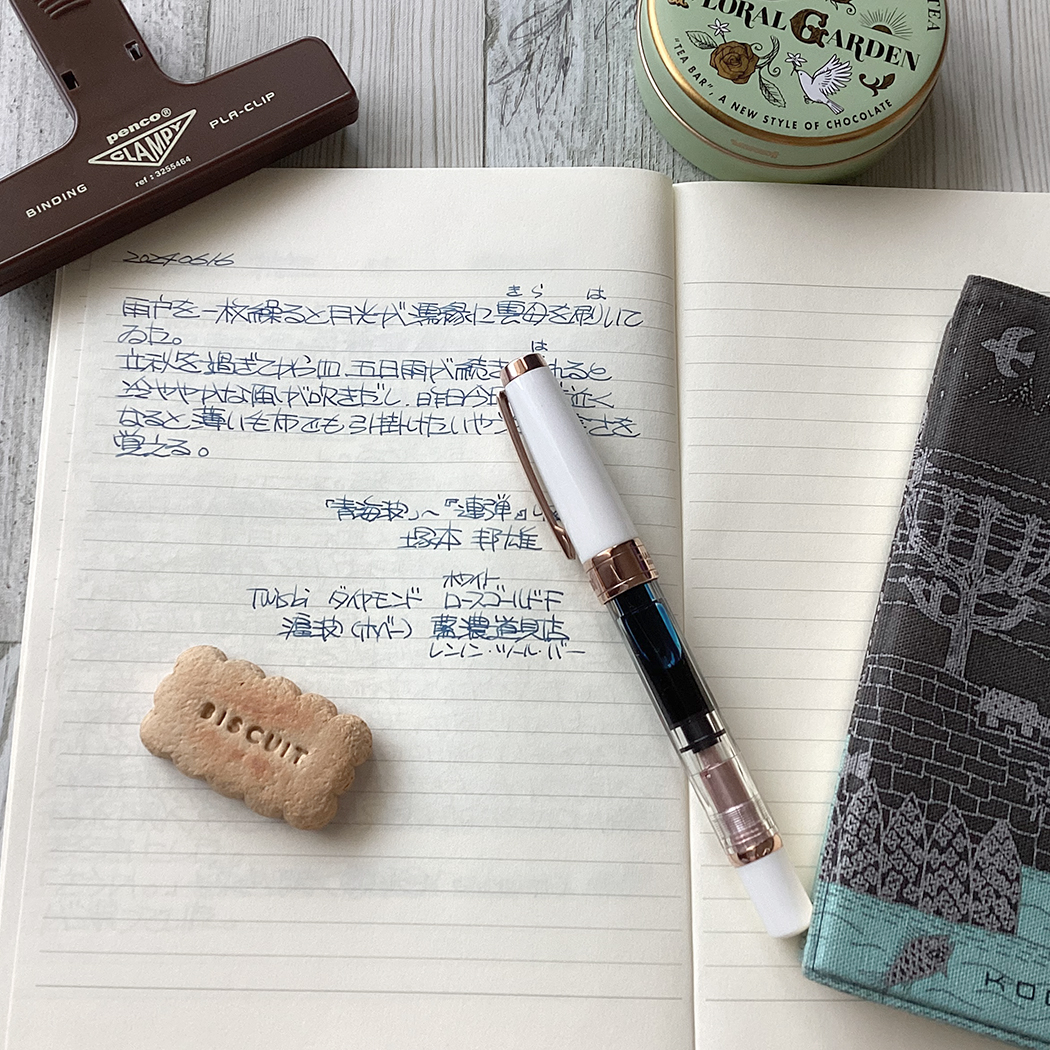 penco®
CLAMPY
PLA-CLIP
BINDING
ref : 3255464
TEA
FLORAL GARDEN
"TEA BAR", A NEW STYLE OF CHOCOLATE
20240616
きら は
雨戸を一枚繰ると月光が濡縁に雲母を刷いて
ゐた。
は
立秋を過ぎてから四、五日雨が続き れると
冷ややかな風が吹きだし、昨日今 近く
なると薄いものでも引掛けたいや さを
覚える。
『青海波』〜『連弾』
塚本 邦雄
ホワイト
TWSBI ダイヤモンド ローズゴールド F
滬波(ホバー) 藍濃道具店
レンノン・ツール・バー
BISCUIT